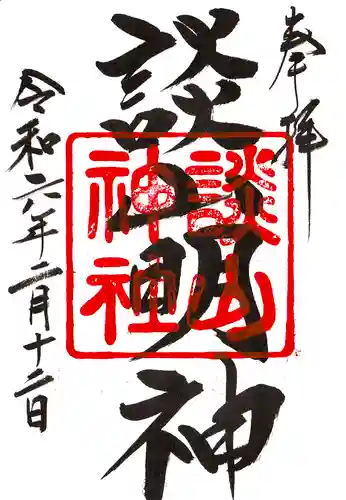 奉拝
談
明神
談山
神社
令和六年二月十二日